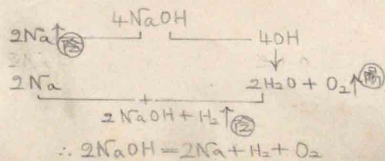 4NaOH
2Na↑陰 4OH
2Na 2H2O + O2↑陽
+
2NaOH + H2↑陰
∴ 2NaOH = 2Na + H2 + O2